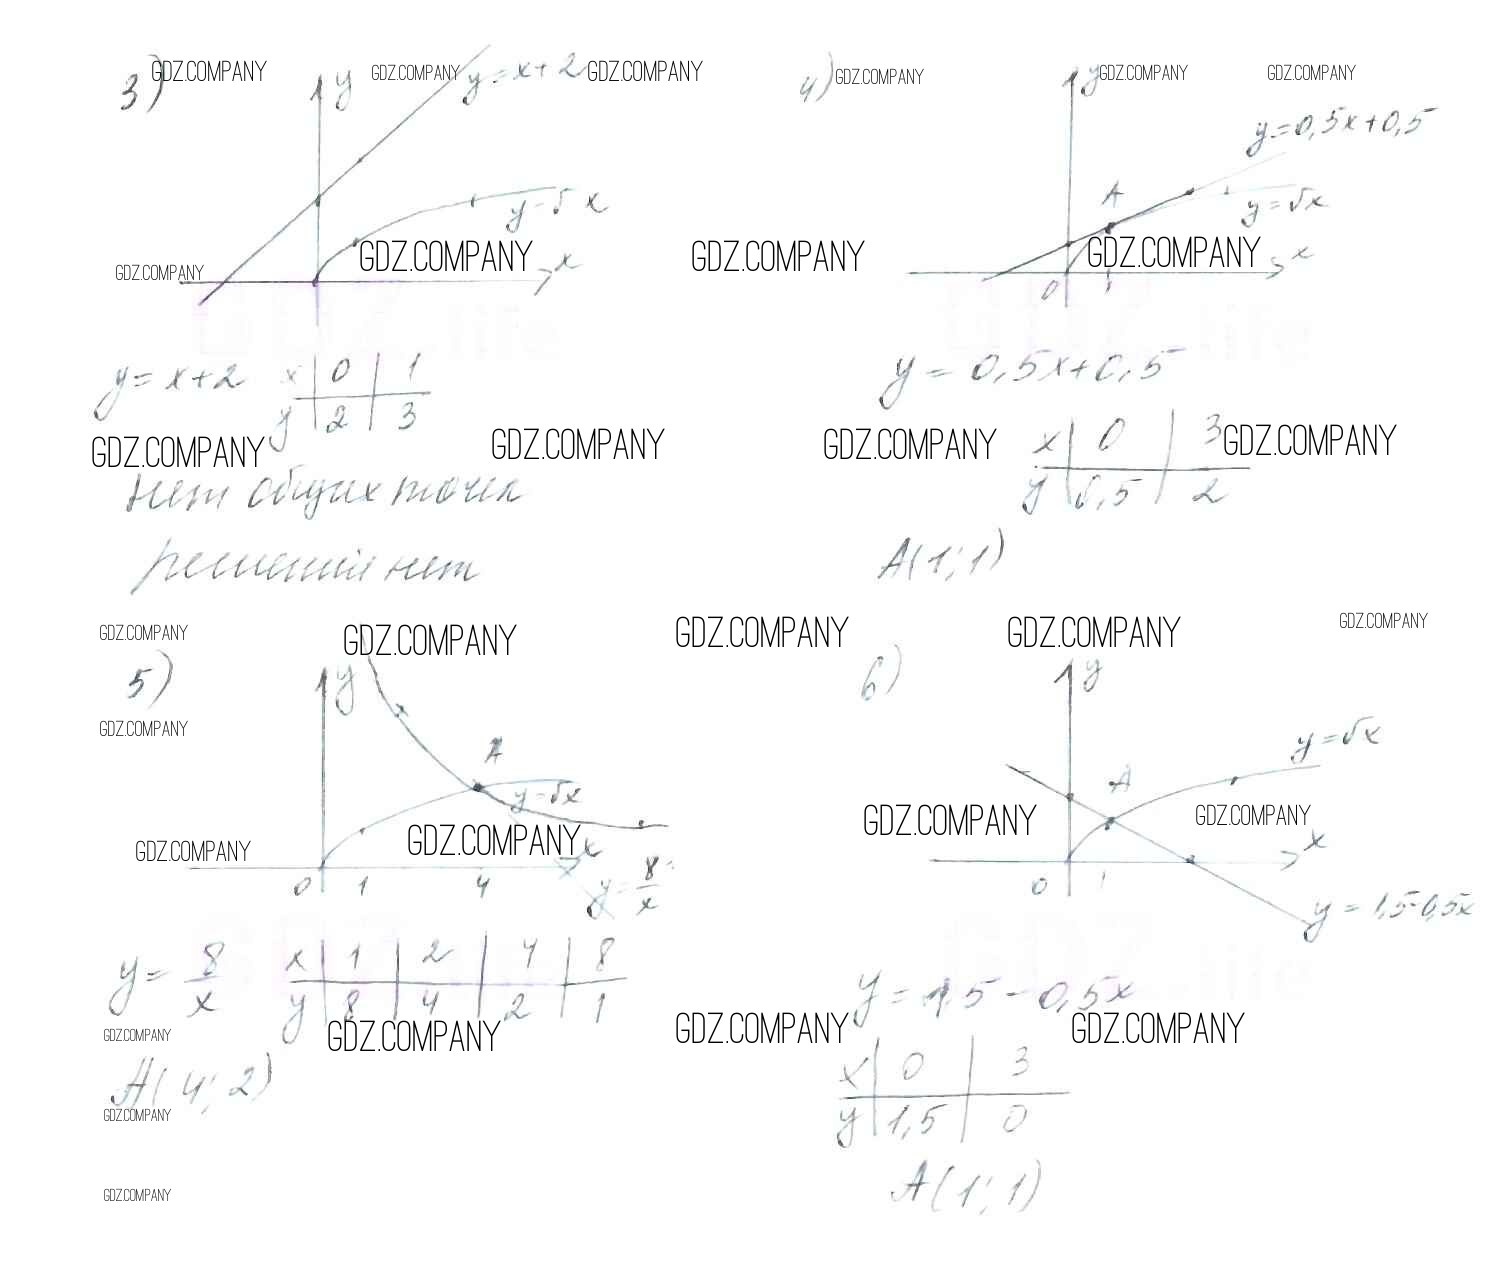 3) GDZ.COMPANY GDZ.COMPANY y = x + 2 GDZ.COMPANY
y
y = √x
GDZ.COMPANY x
GDZ.COMPANY
y = x + 2
x 0 1
y 2 3
GDZ.COMPANY GDZ.COMPANY
нет общих точек
решений нет
4) GDZ.COMPANY y GDZ.COMPANY GDZ.COMPANY
y = 0,5x + 0,5
A
y = √x
GDZ.COMPANY GDZ.COMPANY x
0 1
y = 0,5x + 0,5
GDZ.COMPANY GDZ.COMPANY
x 0 3
y 0,5 2
A(1; 1)
GDZ.COMPANY GDZ.COMPANY GDZ.COMPANY
5) y
GDZ.COMPANY
A
y = √x
GDZ.COMPANY GDZ.COMPANY x
0 1 4
y = 8/x
y = 8/x
x 1 2 4 8
y 8 4 2 1
GDZ.COMPANY GDZ.COMPANY GDZ.COMPANY
A(4; 2)
GDZ.COMPANY
GDZ.COMPANY
GDZ.COMPANY GDZ.COMPANY
6) y
y = √x
A
GDZ.COMPANY GDZ.COMPANY
x
0 1
y = 1,5 - 0,5x
y = 1,5 - 0,5x
GDZ.COMPANY
x 0 3
y 1,5 0
A(1; 1)